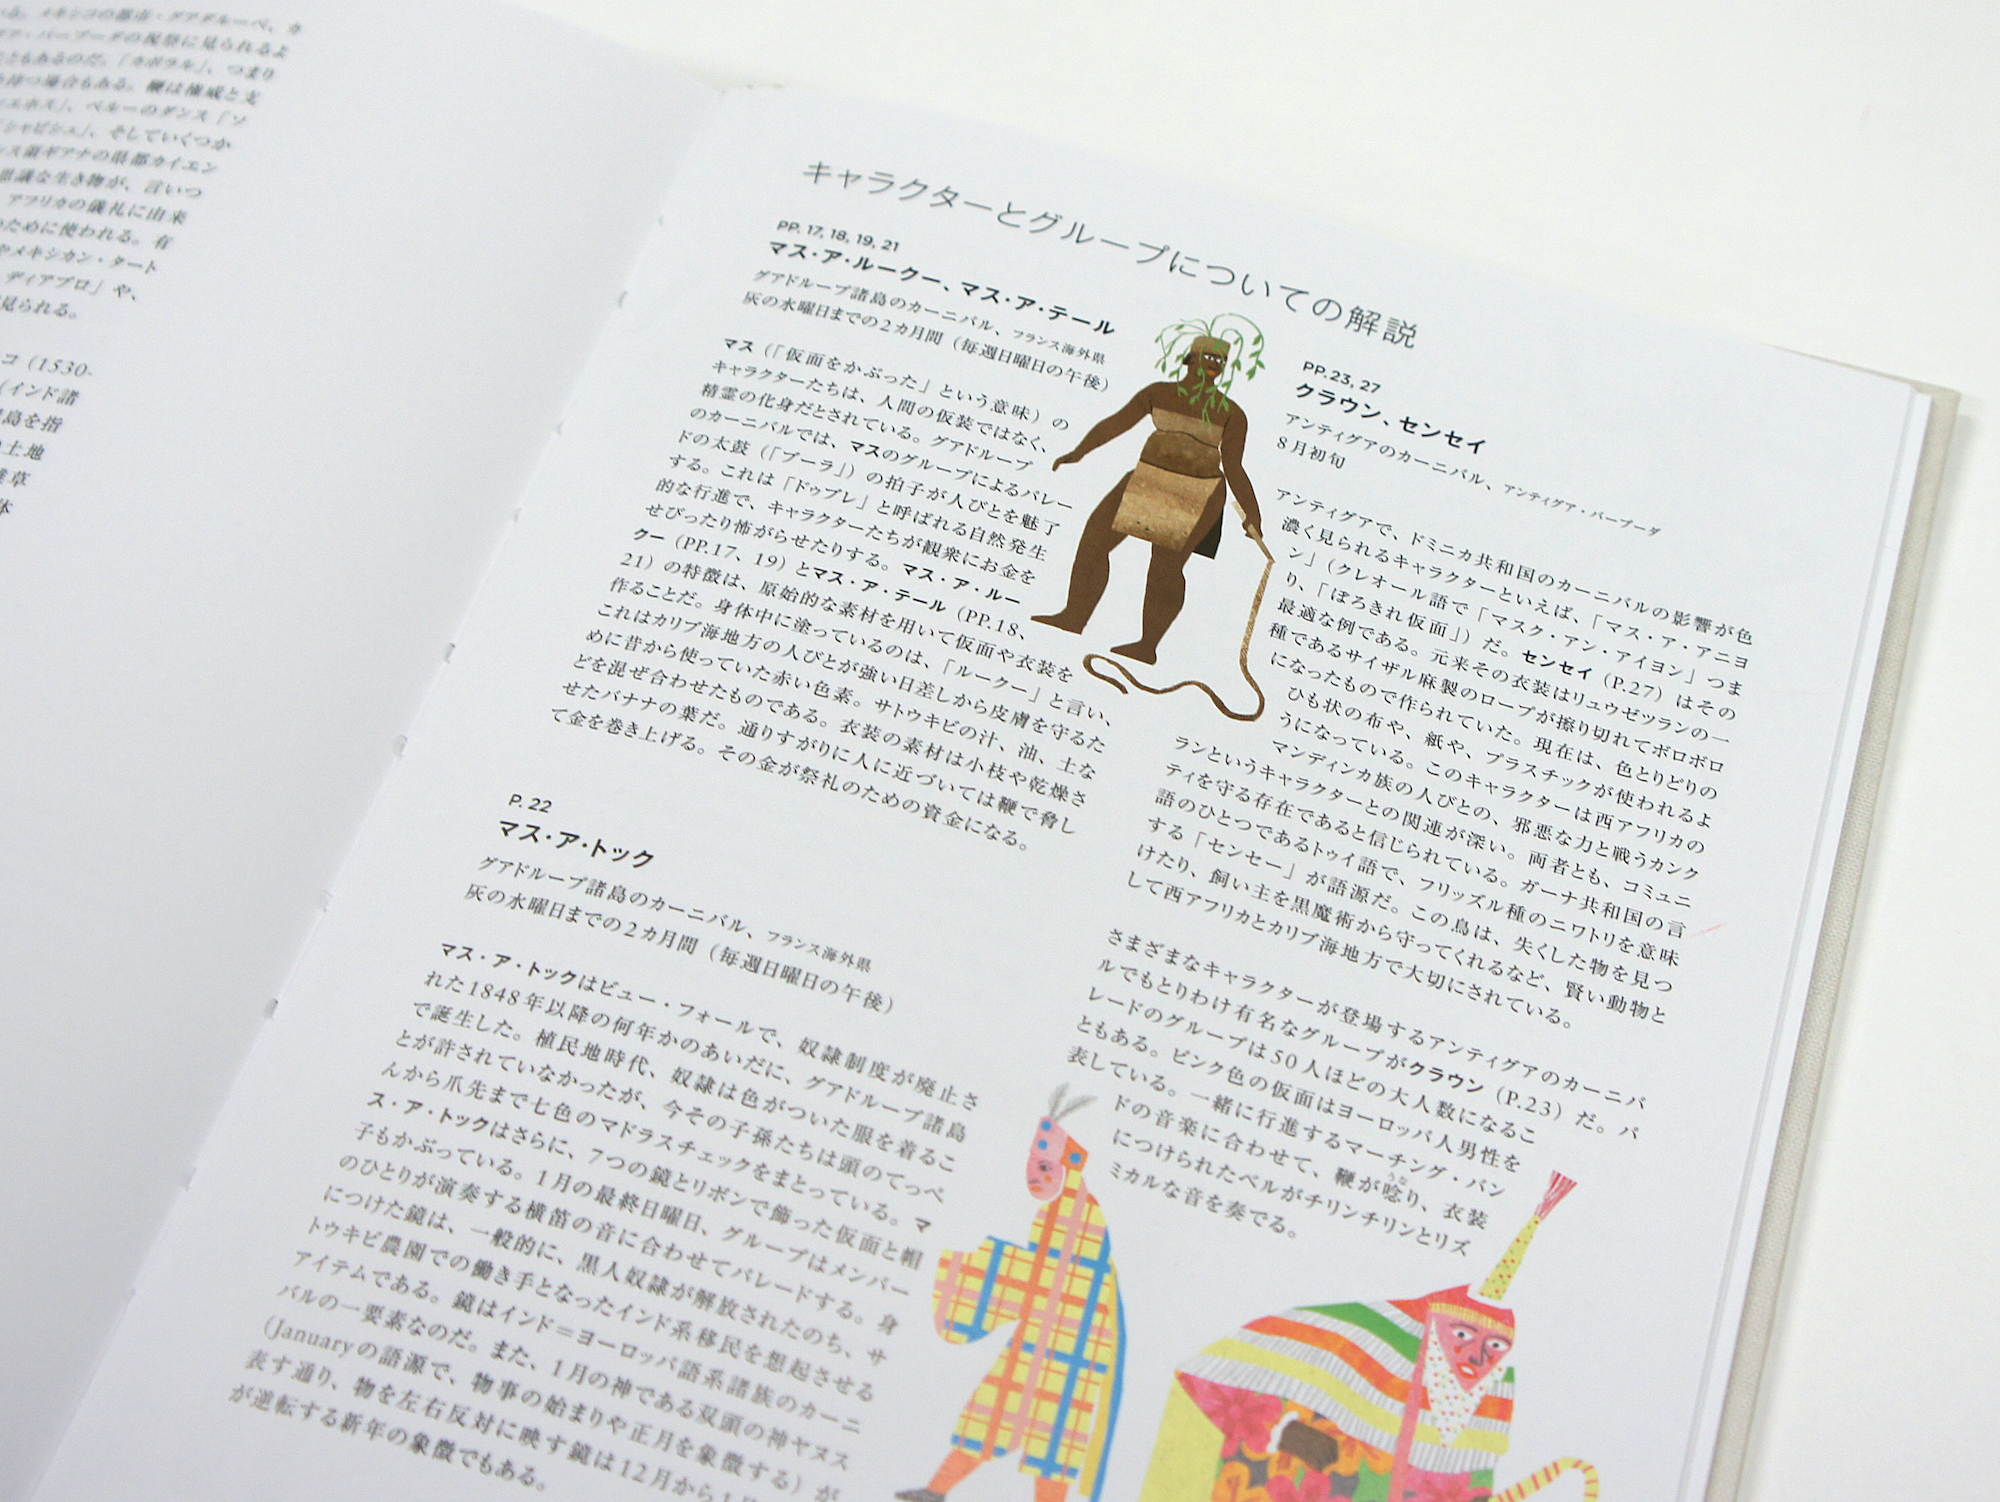 コ（1530-
（インド諸
島を指
土地
体
る。メキシコの都市・グアダルーペ、カ
ア・バーブーダの祝祭に見られるよ
ともあるのだ。「カポラル」、つまり
持つ場合もある。鞭は権威と支
エネス」、ペルーのダンス「ソ
シャピシュ」、そしていくつか
ス領ギアナの県都カイエン
思議な生き物が、言いつ
アフリカの儀礼に由来
ために使われる。有
やメキシカン・タート
ディアブロ」や、
見られる。
キャラクターとグループについての解説
PP. 17, 18, 19, 21
マス・ア・ルークー、マス・ア・テール
グアドループ諸島のカーニバル、フランス海外県
灰の水曜日までの2カ月間（毎週日曜日の午後）
マス（「仮面をかぶった」という意味）の
キャラクターたちは、人間の仮装ではなく、
精霊の化身だとされている。グアドループ
のカーニバルでは、マスのグループによるパレー
ドの太鼓（「ブーラ」）の拍子が人びとを魅了
する。これは「ドゥブレ」と呼ばれる自然発生
的な行進で、キャラクターたちが観衆にお金を
せびったり怖がらせたりする。マス・ア・ルー
クー（PP.17、19）とマス・ア・テール（PP.18、
21）の特徴は、原始的な素材を用いて仮面や衣装を
作ることだ。身体中に塗っているのは、「ルークー」と言い、
これはカリブ海地方の人びとが強い日差しから皮膚を守るた
めに昔から使っていた赤い色素。サトウキビの汁、油、土な
どを混ぜ合わせたものである。衣装の素材は小枝や乾燥さ
せたバナナの葉だ。通りすがりに人に近づいては鞭で脅し
て金を巻き上げる。その金が祭礼のための資金になる。
P. 22
マス・ア・トック
グアドループ諸島のカーニバル、フランス海外県
灰の水曜日までの2カ月間（毎週日曜日の午後）
マス・ア・トックはビュー・フォールで、奴隷制度が廃止さ
れた1848年以降の何年かのあいだに、グアドループ諸島
で誕生した。植民地時代、奴隷は色がついた服を着るこ
とが許されていなかったが、今その子孫たちは頭のてっぺ
んから爪先まで七色のマドラスチェックをまとっている。マ
ス・ア・トックはさらに、7つの鏡とリボンで飾った仮面と帽
子もかぶっている。1月の最終日曜日、グループはメンバー
のひとりが演奏する横笛の音に合わせてパレードする。身
につけた鏡は、一般的に、黒人奴隷が解放されたのち、サ
トウキビ農園での働き手となったインド系移民を想起させる
アイテムである。鏡はインド＝ヨーロッパ語系諸族のカーニ
バルの一要素なのだ。また、1月の神である双頭の神ヤヌス
（Januaryの語源で、物事の始まりや正月を象徴する）が
表す通り、物を左右反対に映す鏡は12月から1月
が逆転する新年の象徴でもある。
PP. 23, 27
クラウン、センセイ
アンティグアのカーニバル、アンティグア・バーブーダ
8月初旬
アンティグアで、ドミニカ共和国のカーニバルの影響が色
濃く見られるキャラクターといえば、「マス・ア・アニヨ
ン」（クレオール語で「マスク・アン・アイヨン」つま
り、「ぼろきれ仮面」）だ。センセイ（P.27）はその
最適な例である。元来その衣装はリュウゼツランの一
種であるサイザル麻製のロープが擦り切れてボロボロ
になったもので作られていた。現在は、色とりどりの
ひも状の布や、紙や、プラスチックが使われるよ
うになっている。このキャラクターは西アフリカの
マンディンカ族の人びとの、邪悪な力と戦うカンク
ランというキャラクターとの関連が深い。両者とも、コミュニ
ティを守る存在であると信じられている。ガーナ共和国の言
語のひとつであるトゥイ語で、フリッズル種のニワトリを意味
する「センセー」が語源だ。この鳥は、失くした物を見つ
けたり、飼い主を黒魔術から守ってくれるなど、賢い動物と
して西アフリカとカリブ海地方で大切にされている。
さまざまなキャラクターが登場するアンティグアのカーニバ
ルでもとりわけ有名なグループがクラウン（P.23）だ。パ
レードのグループは50人ほどの大人数になるこ
ともある。ピンク色の仮面はヨーロッパ人男性を
表している。一緒に行進するマーチング・バン
ドの音楽に合わせて、鞭が唸り、衣装
につけられたベルがチリンチリンとリズ
ミカルな音を奏でる。